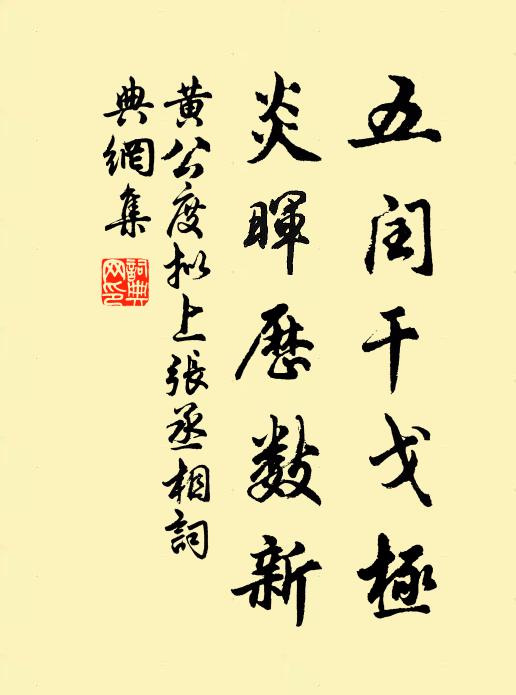 五闰干戈極
炎暉歷數新
黄公度拟上張丞相詞
典網集
詞典
网印